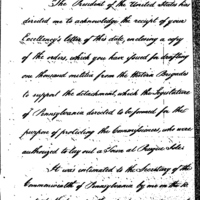 The President of the United States has
directed me to acknowledge the receipt of your
Excellency's letter of this date, enclosing a copy
of the orders, which you have issued for drafting
one thousand militia from the Western Brigades
to support the detachment, which the Legislature
of Pennsylvania directed to be formed for the
purpose of protecting the Commissioners, who were
authorized to lay out a Town at Presque Isle.
It was intimated to the Secretary of the
Commonwealth of Pennsylvania by me on the